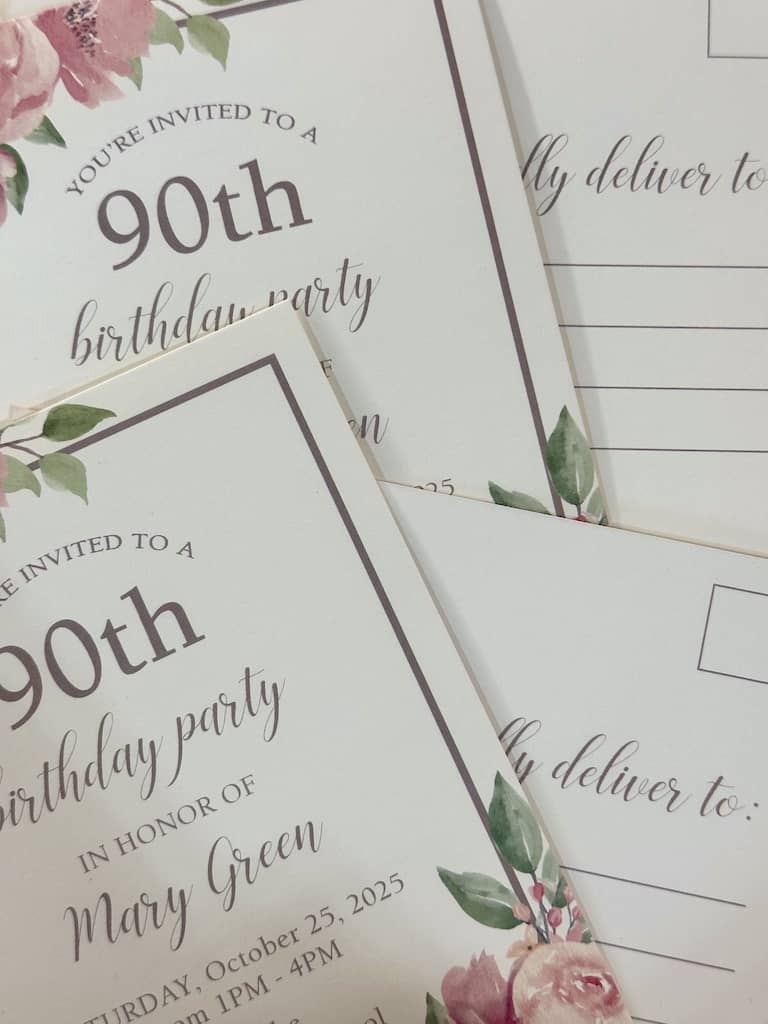 YOU'RE INVITED TO A
90th
birthday party
2025
deliver to
INVITED TO A
90th
birthday party
IN HONOR OF
Mary Green
October 25, 2025
1PM - 4PM
deliver to: